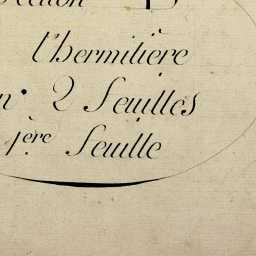 l'hermitière
n° 2 Feuilles
1ère Feuille